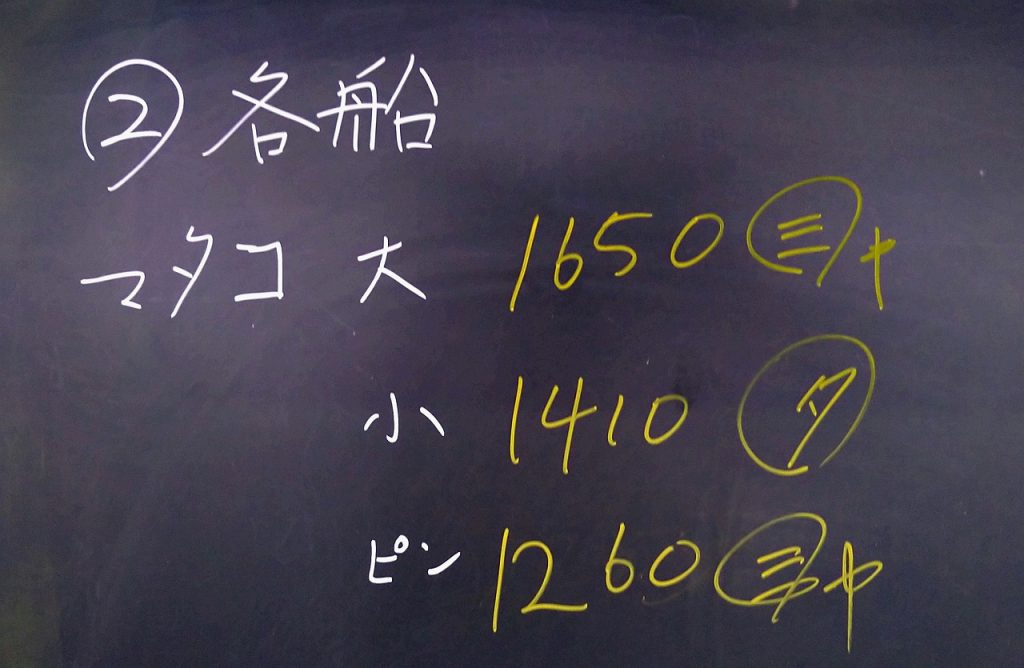 ② 各船
マタコ 大 1650 ㊂ヤ
小 1410 タ
ピン 1260 ㊂ヤ